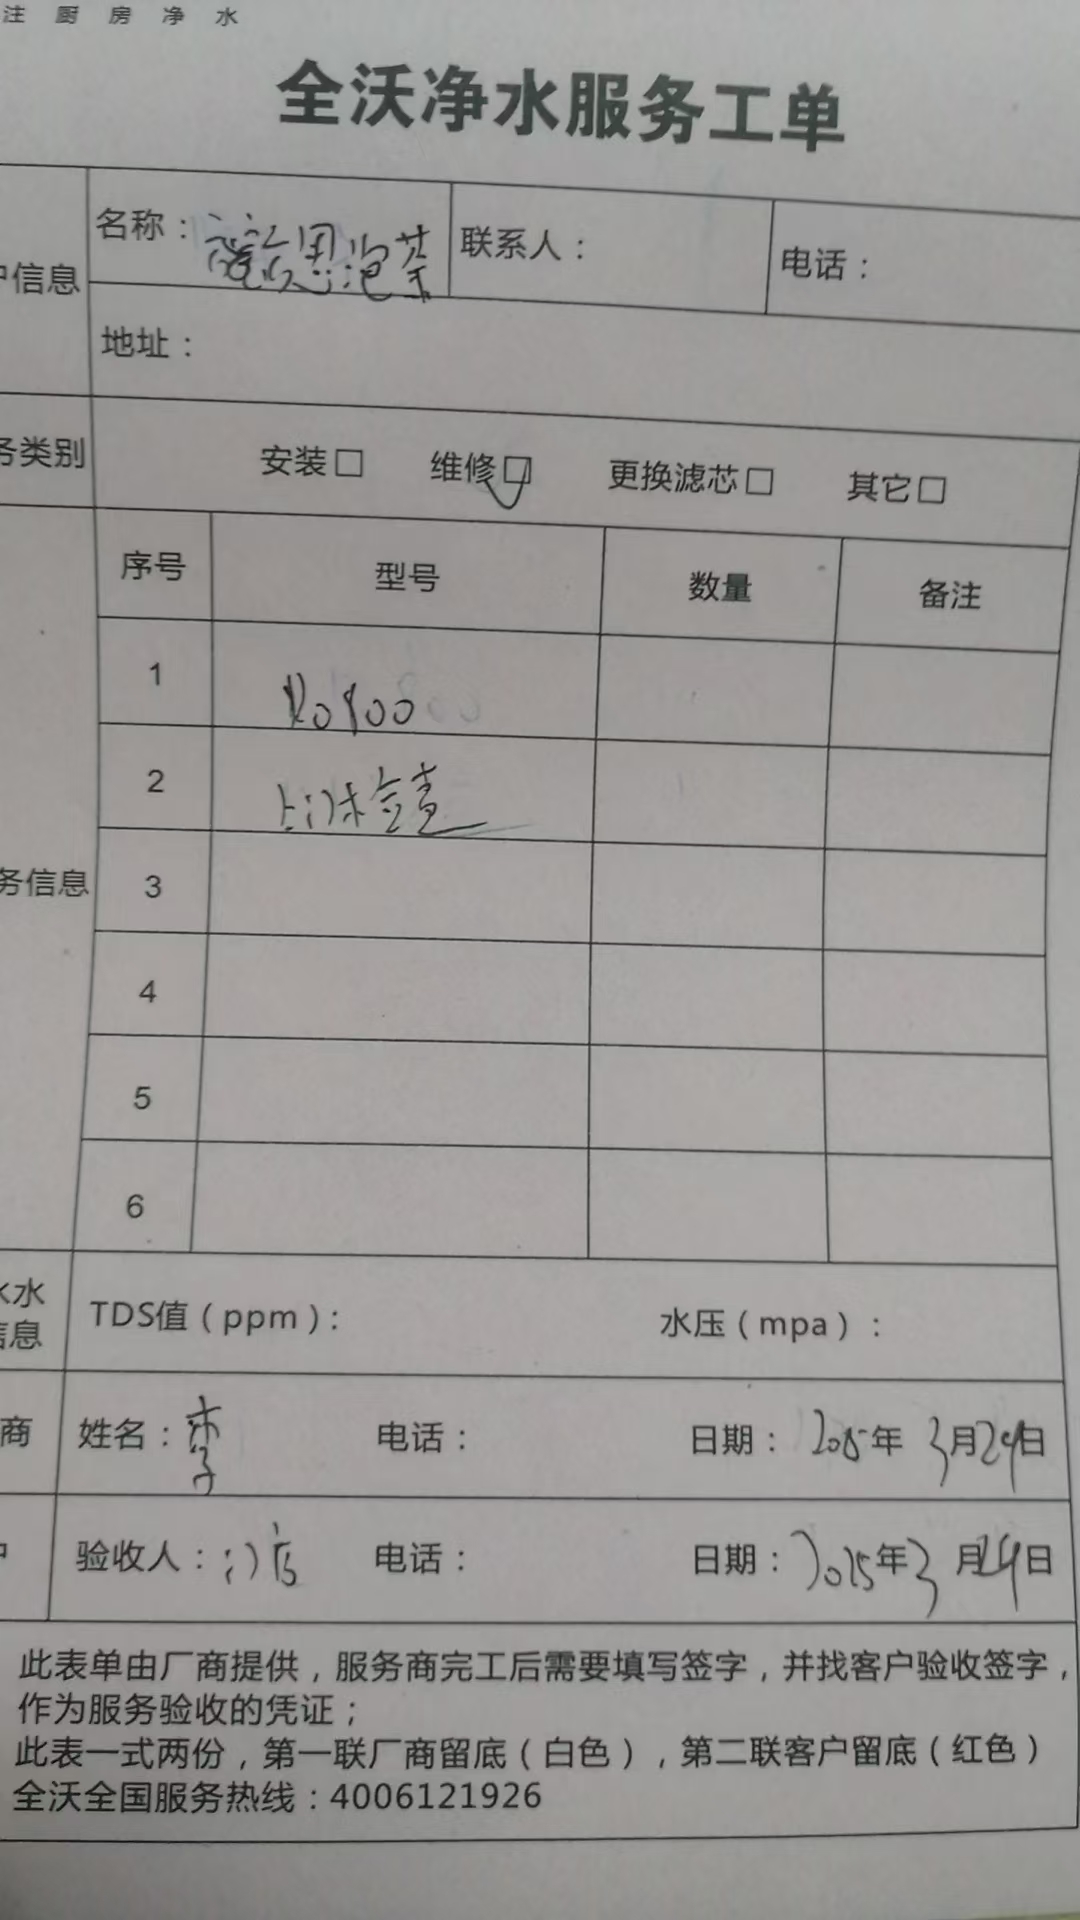 注 厨 房 净 水
全沃净水服务工单
名称： 联系人： 电话：
信息
地址：
务类别 安装□ 维修□ 更换滤芯□ 其它□
序号 型号 数量 备注
1 RO800
2
务信息 3
4
5
6
水 TDS值（ppm）： 水压（mpa）：
信息
商 姓名：李 电话： 日期： 年 3月24日
验收人： 电话： 日期：2025年3月24日
此表单由厂商提供，服务商完工后需要填写签字，并找客户验收签字，
作为服务验收的凭证；
此表一式两份，第一联厂商留底（白色），第二联客户留底（红色）
全沃全国服务热线：4006121926